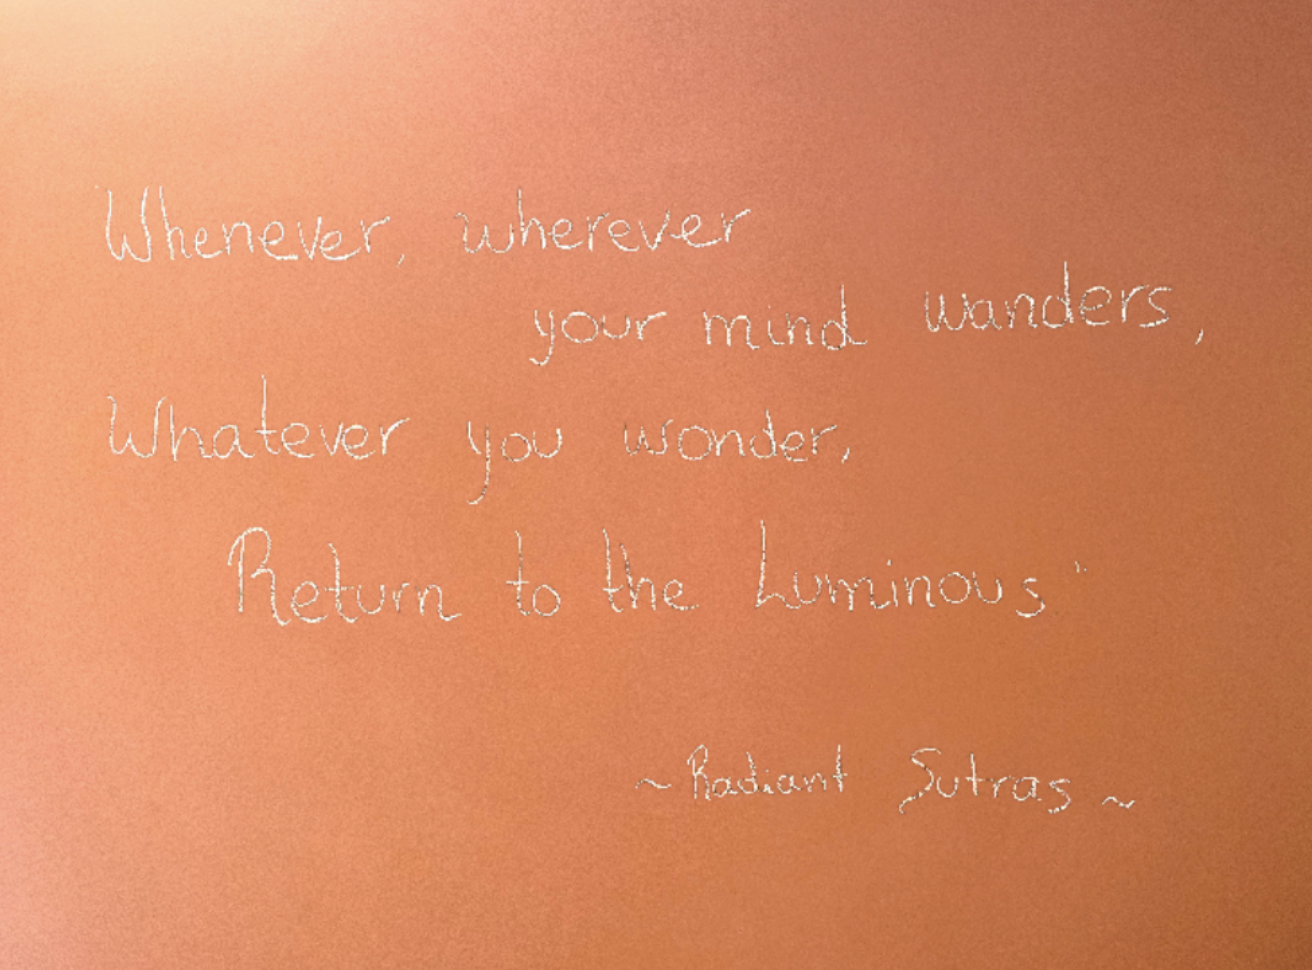 Whenever, wherever
your mind wanders,
Whatever you wonder,
Return to the Luminous"
~ Radiant Sutras ~